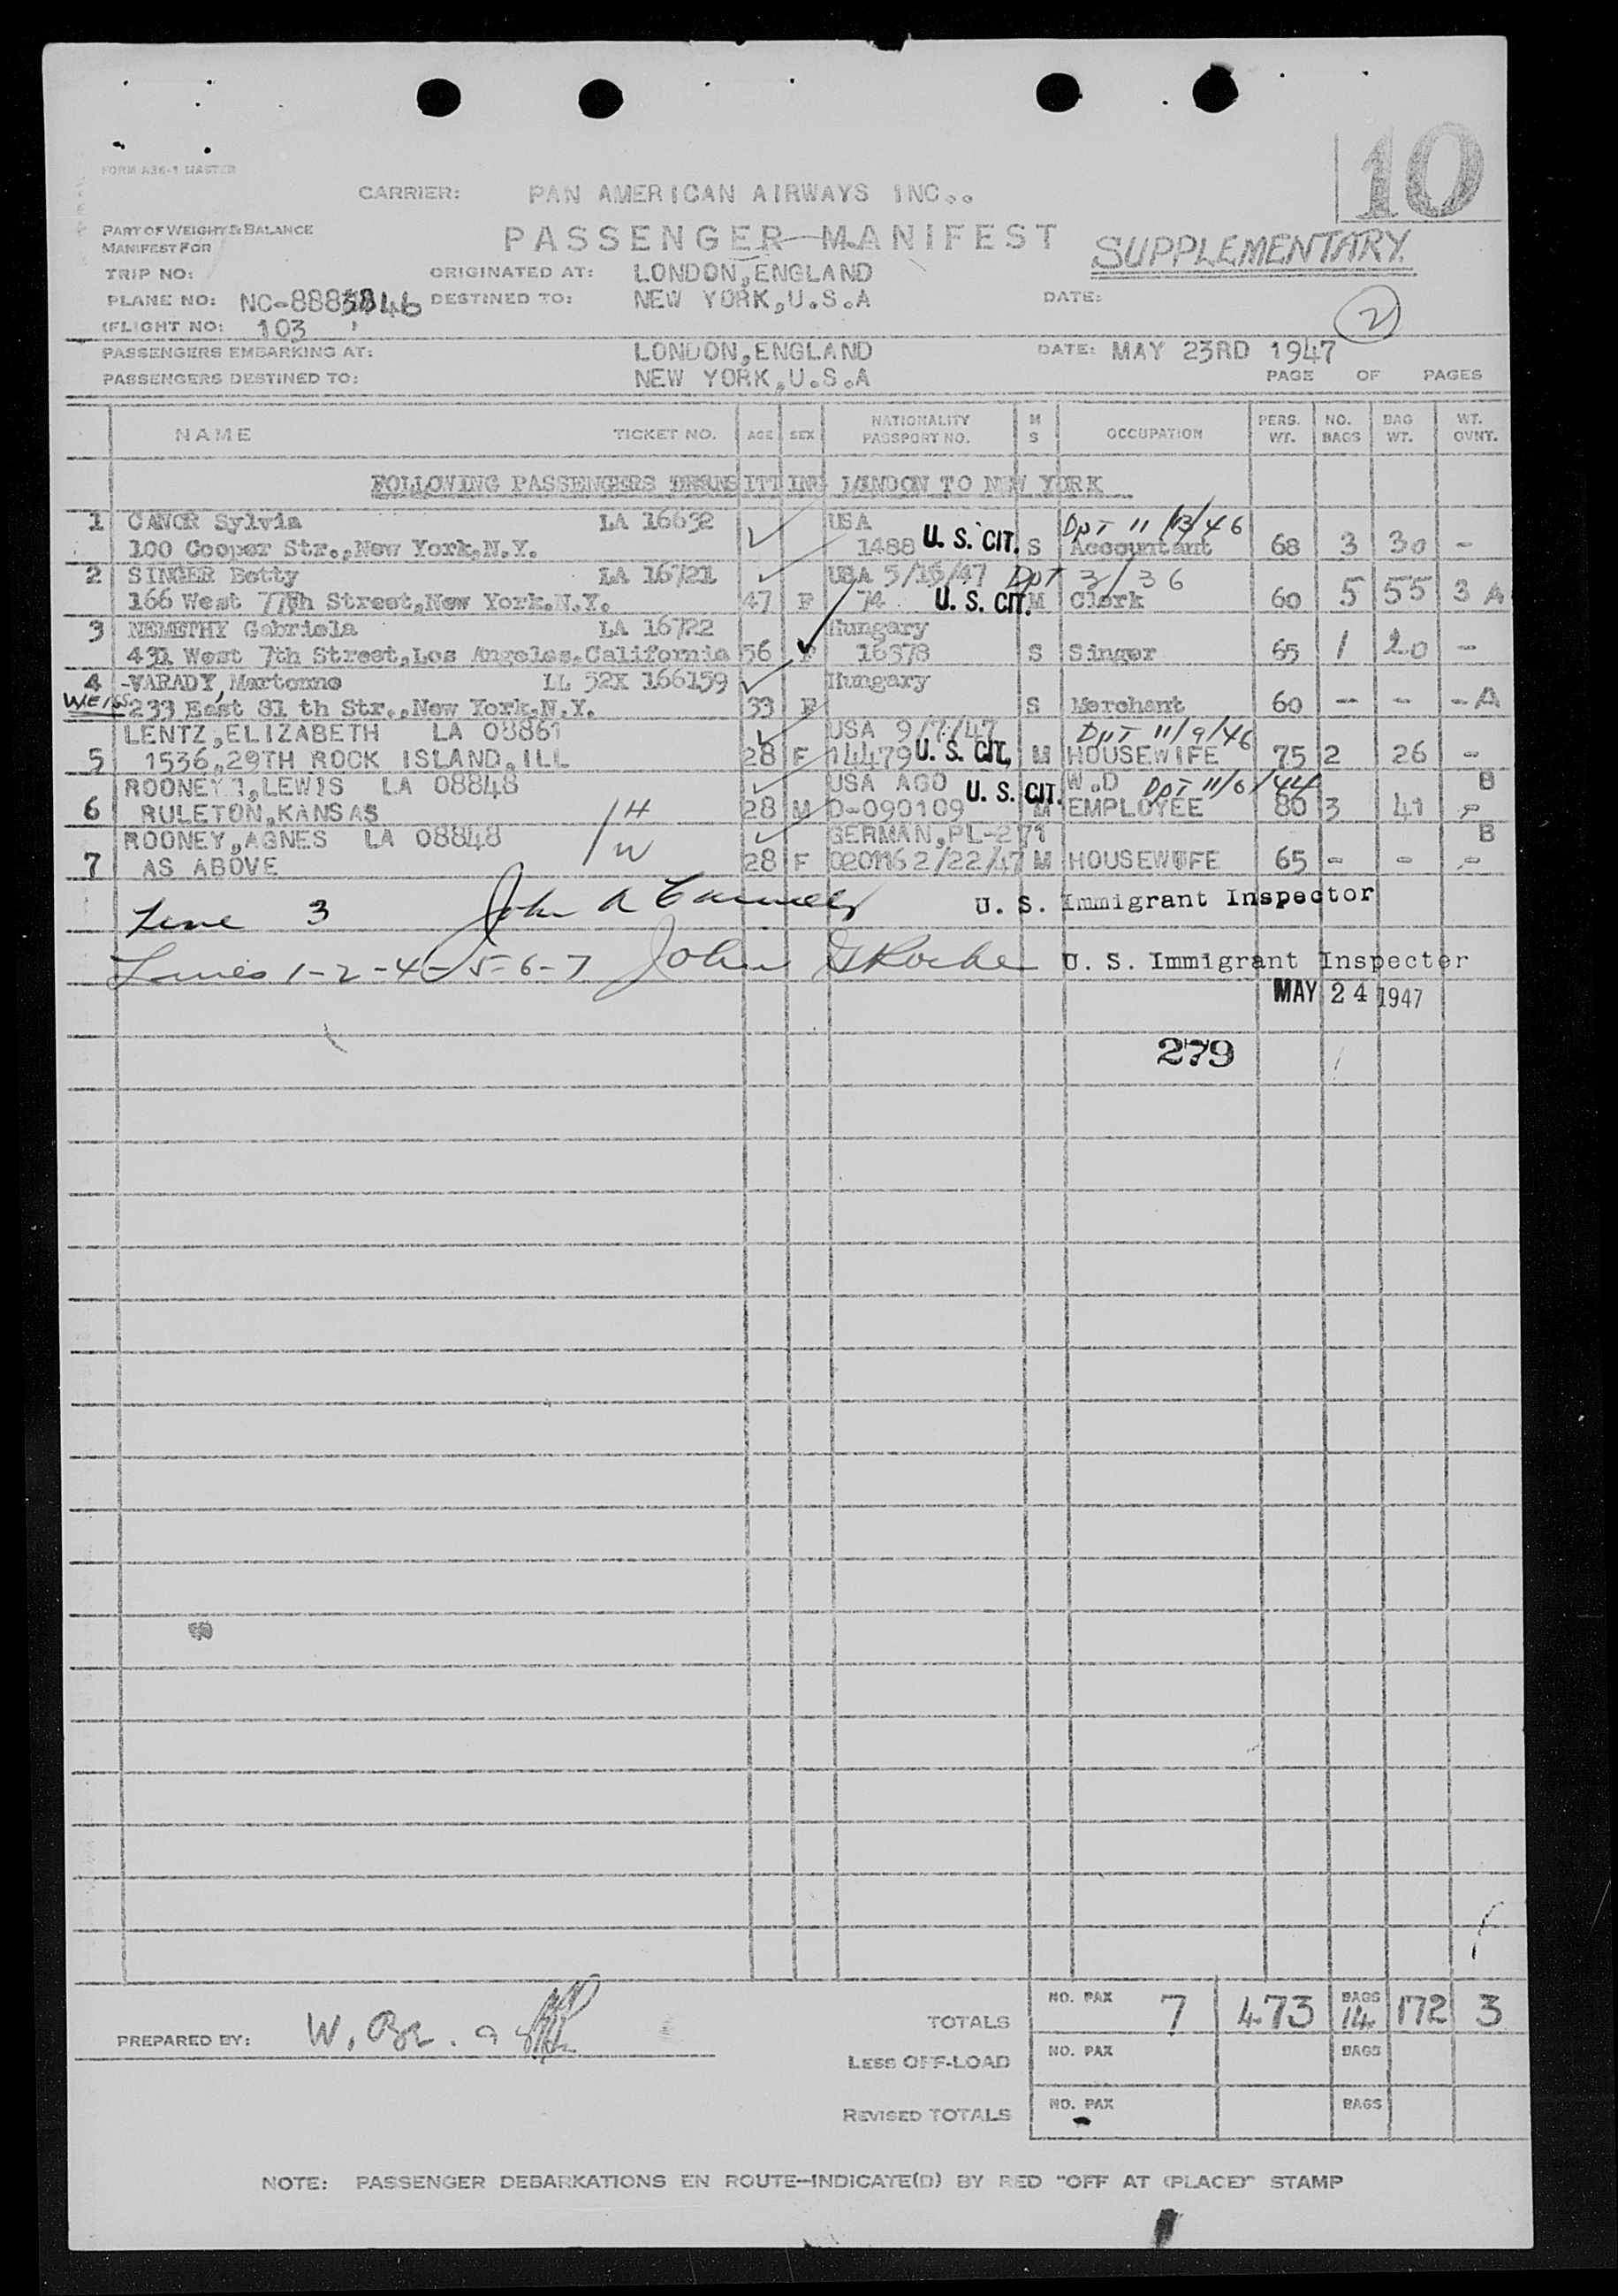 10
FORM A36-1 MASTER
CARRIER: PAN AMERICAN AIRWAYS INC..
PART OF WEIGHT & BALANCE
MANIFEST FOR
PASSENGER MANIFEST
SUPPLEMENTARY.
TRIP NO: ORIGINATED AT: LONDON,ENGLAND
PLANE NO: NC-888 46 DESTINED TO: NEW YORK,U.S.A DATE:
2
(FLIGHT NO: 103
PASSENGERS EMBARKING AT: LONDON,ENGLAND DATE: MAY 23RD 1947
PASSENGERS DESTINED TO: NEW YORK,U.S.A PAGE OF PAGES
NAME TICKET NO. AGE SEX NATIONALITY PASSPORT NO. M S OCCUPATION PERS. WT. NO. BAGS BAG WT. WT. OVNT.
FOLLOWING PASSENGERS LONDON TO NEW YORK
1 CANOR Sylvia LA 16632 USA DPT 11/13/46
100 Cooper Str.,New York,N.Y. 1488 U. S. CIT. S Accountant 68 3 30 -
2 SINGER Betty LA 16721 USA 5/15/47 DPT 3/36
166 West 77th Street,New York.N.Y. 47 F 74 U. S. CIT. M Clerk 60 5 55 3 A
3 NEMETHY Gabriela LA 16722 Hungary
431 West 7th Street,Los Angeles.California 56 F 16378 S Singer 65 1 20 -
4 -VARADY, Martonne LL 52X 166159 Hungary
WEISS 233 East 81 th Str.,New York.N.Y. 33 F S Merchant 60 - - - A
LENTZ,ELIZABETH LA 08861 USA 9/7/47 DPT 11/9/46
5 1536,29TH ROCK ISLAND,ILL 28 F 14479 U. S. CIT. M HOUSEWIFE 75 2 26 -
ROONEY ,LEWIS LA 08848 USA AGO U. S. CIT. W.D DPT 11/6/44 B
6 RULETON,KANSAS 1H 28 M D-090109 M EMPLOYEE 80 3 41 -
ROONEY,AGNES LA 08848 GERMAN,PL-271 B
7 AS ABOVE 1W 28 F 020116 2/22/47 M HOUSEWIFE 65 - - -
Line 3 John A U. S. Immigrant Inspector
Lines 1-2-4-5-6-7 John Roche U. S. Immigrant Inspecter
MAY 24 1947
279
TOTALS NO. PAX 7 473 BAGS 14 172 3
PREPARED BY: W.
LESS OFF-LOAD NO. PAX BAGS
REVISED TOTALS NO. PAX BAGS
NOTE: PASSENGER DEBARKATIONS EN ROUTE-INDICATE(D) BY RED "OFF AT (PLACE)" STAMP